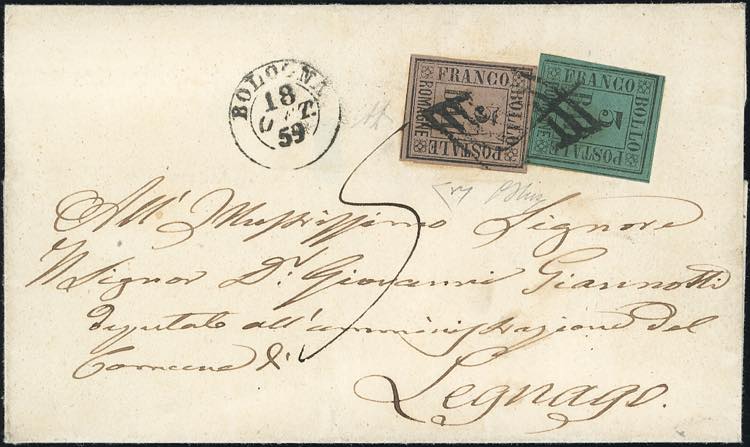 BOLOGNA
18
OTT.
59
FRANCO
BOLLO
POSTALE
ROMAGNE
FRANCO
BOLLO
POSTALE
ROMAGNE
B. 5
5
All' Illustrissimo Signore
Il Signor Dr. Giovanni Giannotti
deputato all'amministrazione del
Comune di
Legnago.